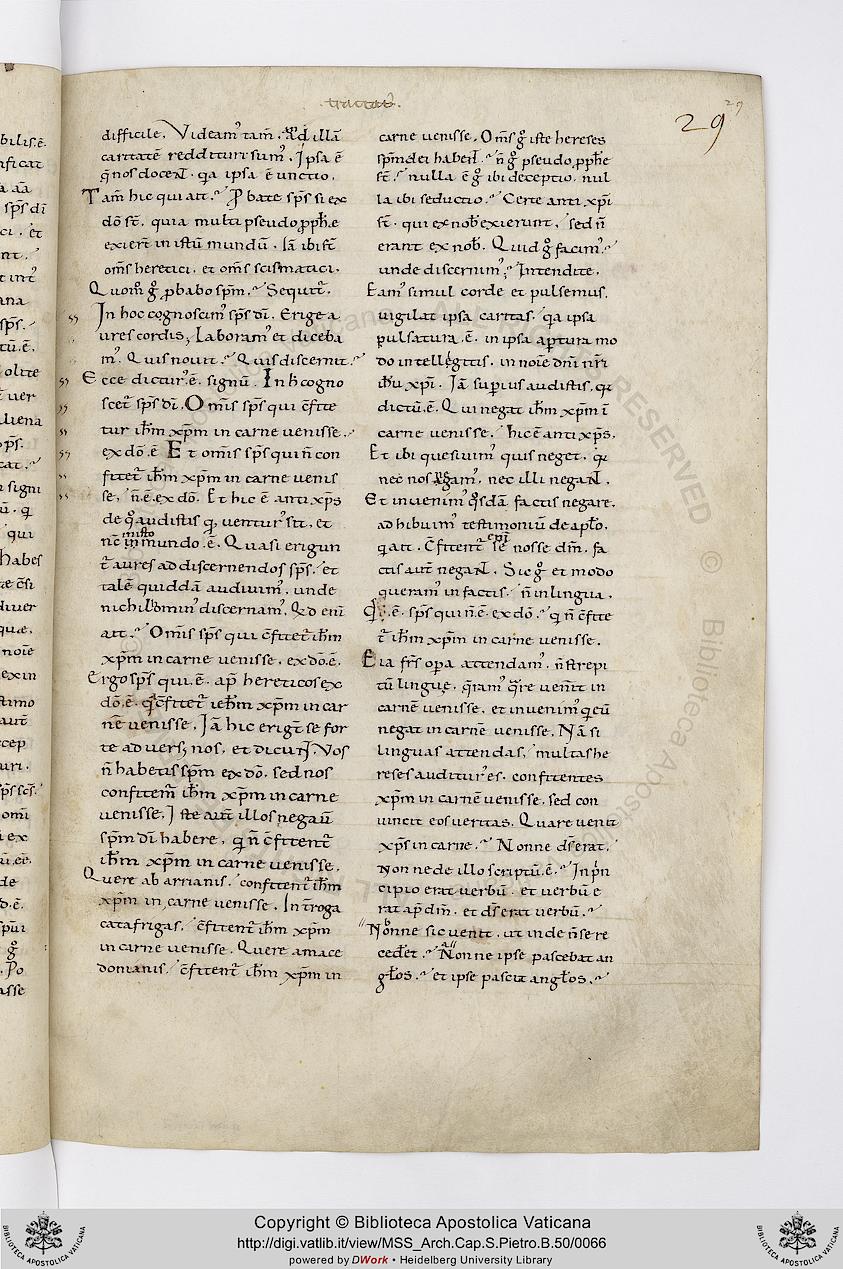 tractat᷒.
29
29
difficile. Videam᷒ tam̄. Ad illā
caritatē reddituri sum᷒. Ipsa ē
q̄ nos docet. q̇a ipsa ē unctio.
Tam̄ hic qui ait. Ꝓbate sp̄s si ex
dō st̄. quia multi pseudo ꝓph̄e
exier̄t in istū mundū. Iā ibi st̄
om̄s heretici. et om̄s scismatici.
Quom̊ g̊ ꝓbabo sp̄m. Sequit᷒.
In hoc cognoscim᷒ sp̄s dī. Erige a
ures cordis; Laboram᷒ et diceba
m᷒. Quis novit. Quis discernit.
Ecce dictur᷒ .ē. signū. In h̄ cogno
scet᷒ sp̄s dī. Om̄is sp̄s qui c̄fite
tur ih̄m xp̄m in carne venisse.
ex dō .ē Et om̄is sp̄s qui n̄ con
fitet᷒ ih̄m xp̄m in carne venis
se. n̄ .ē. ex dō. Et hic ē anti xp̄s
de q̊ audistis q̇ ventur᷒ sit, et
nc̄ in misto mundo .ē. Quasi erigun
t᷒ aures ad discernendos sp̄s. et
talē quiddā audivim᷒. unde
nichilomin᷒ discernam᷒. Qd eni
ait. Om̄is sp̄s qui c̄fitet᷒ ih̄m
xp̄m in carne venisse. ex dō .ē.
Ergo sp̄s qui .ē. ap̄ hereticos ex
dō .ē. q̇ c̄fitet᷒ ieh̄m xp̄m in car
nē venisse. Iā hic erigt̄ se for
te advers; nos. et dicunt. Vos
n̄ habetis sp̄m ex dō. sed nos
confitem᷒ ih̄m xp̄m in carne
venisse. Iste aut̄ illos negaū
sp̄m dī habere. q̇ n̄ c̄fitent᷒
ih̄m xp̄m in carne venisse.
Quere ab arrianis. confitent᷒ ih̄m
xp̄m in carne venisse. Int᷒roga
catafrigas. c̄fitent᷒ ih̄m xp̄m
in carne venisse. Quere a mace
donianis. c̄fitent᷒ ih̄m xp̄m in
carne venisse. Om̄s g̊ iste hereses
sp̄m dei habent. n̄ g̊ pseudo ꝓph̄e
st̄. nulla ē g̊ ibi deceptio. nul
la ibi seductio. Certe anti xp̄i
st̄. qui ex nob̄ exierunt. sed n̄
erant ex nob̄. Quid g̊ facim᷒
unde discernim᷒; Intendite.
Eam᷒ simul corde et pulsemus.
vigilat ipsa caritas. q̇a ipsa
pulsatura .ē. in ipsa aptura mo
do intellegitis. in noīe dn̄i nr̄i
ih̄u xp̄i. Iā supius audistis. q̇
dictū .ē. Qui negat ih̄m xp̄m ī
carne venisse. hic ē anti xp̄s.
Et ibi quesivim᷒ quis neget. q̇
nec nos negam᷒. nec illi negant.
Et invenim᷒ q̊sdā factis negare.
adhibuim᷒ testimoniū de aplo.
q̇ ait. C̄fitent᷒ se nosse dm̄. fa
ctis aut̄ negant. Sic g̊ et modo
queram᷒ in factis. n̄ in lingua.
Quis .ē. sp̄s qui n̄ .ē. ex dō. q̇ n̄ c̄fite
t᷒ ih̄m xp̄m in carne venisse.
Eia fr̄s opa attendam᷒. n̄ strepi
tū linguę. queram᷒ quare venit in
carnē venisse. et invenim᷒ q̇ eū
negat in carnē venisse. Nā si
linguas attendas. multas he
reses auditur᷒ es. confitentes
xp̄m in carnē venisse. sed con
vincit eos veritas. Quare venit
xp̄s in carne. Nonne ds̄ erat.
Nonne de illo scriptū .ē. In p̄n
cipio erat verbū. et verbū e
rat ap̄ dm̄. et ds̄ erat verbū.
Nonne sic venit. ut inde n̄ se re
cederet. Nonne ipse pascebat an
gl̄os. et ipse pascit angl̄os.
Copyright © Biblioteca Apostolica Vaticana
http://digi.vatlib.it/view/MSS_Arch.Cap.S.Pietro.B.50/0066
powered by DWork • Heidelberg University Library